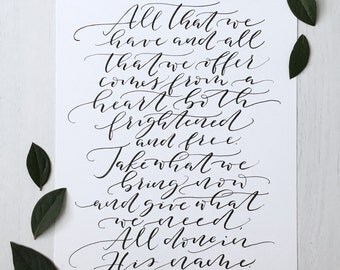 All that we
have and all
that we offer
comes from a
heart both
frightened
and free.
Take what we
bring now
and give what
we need.
All done in
His name.